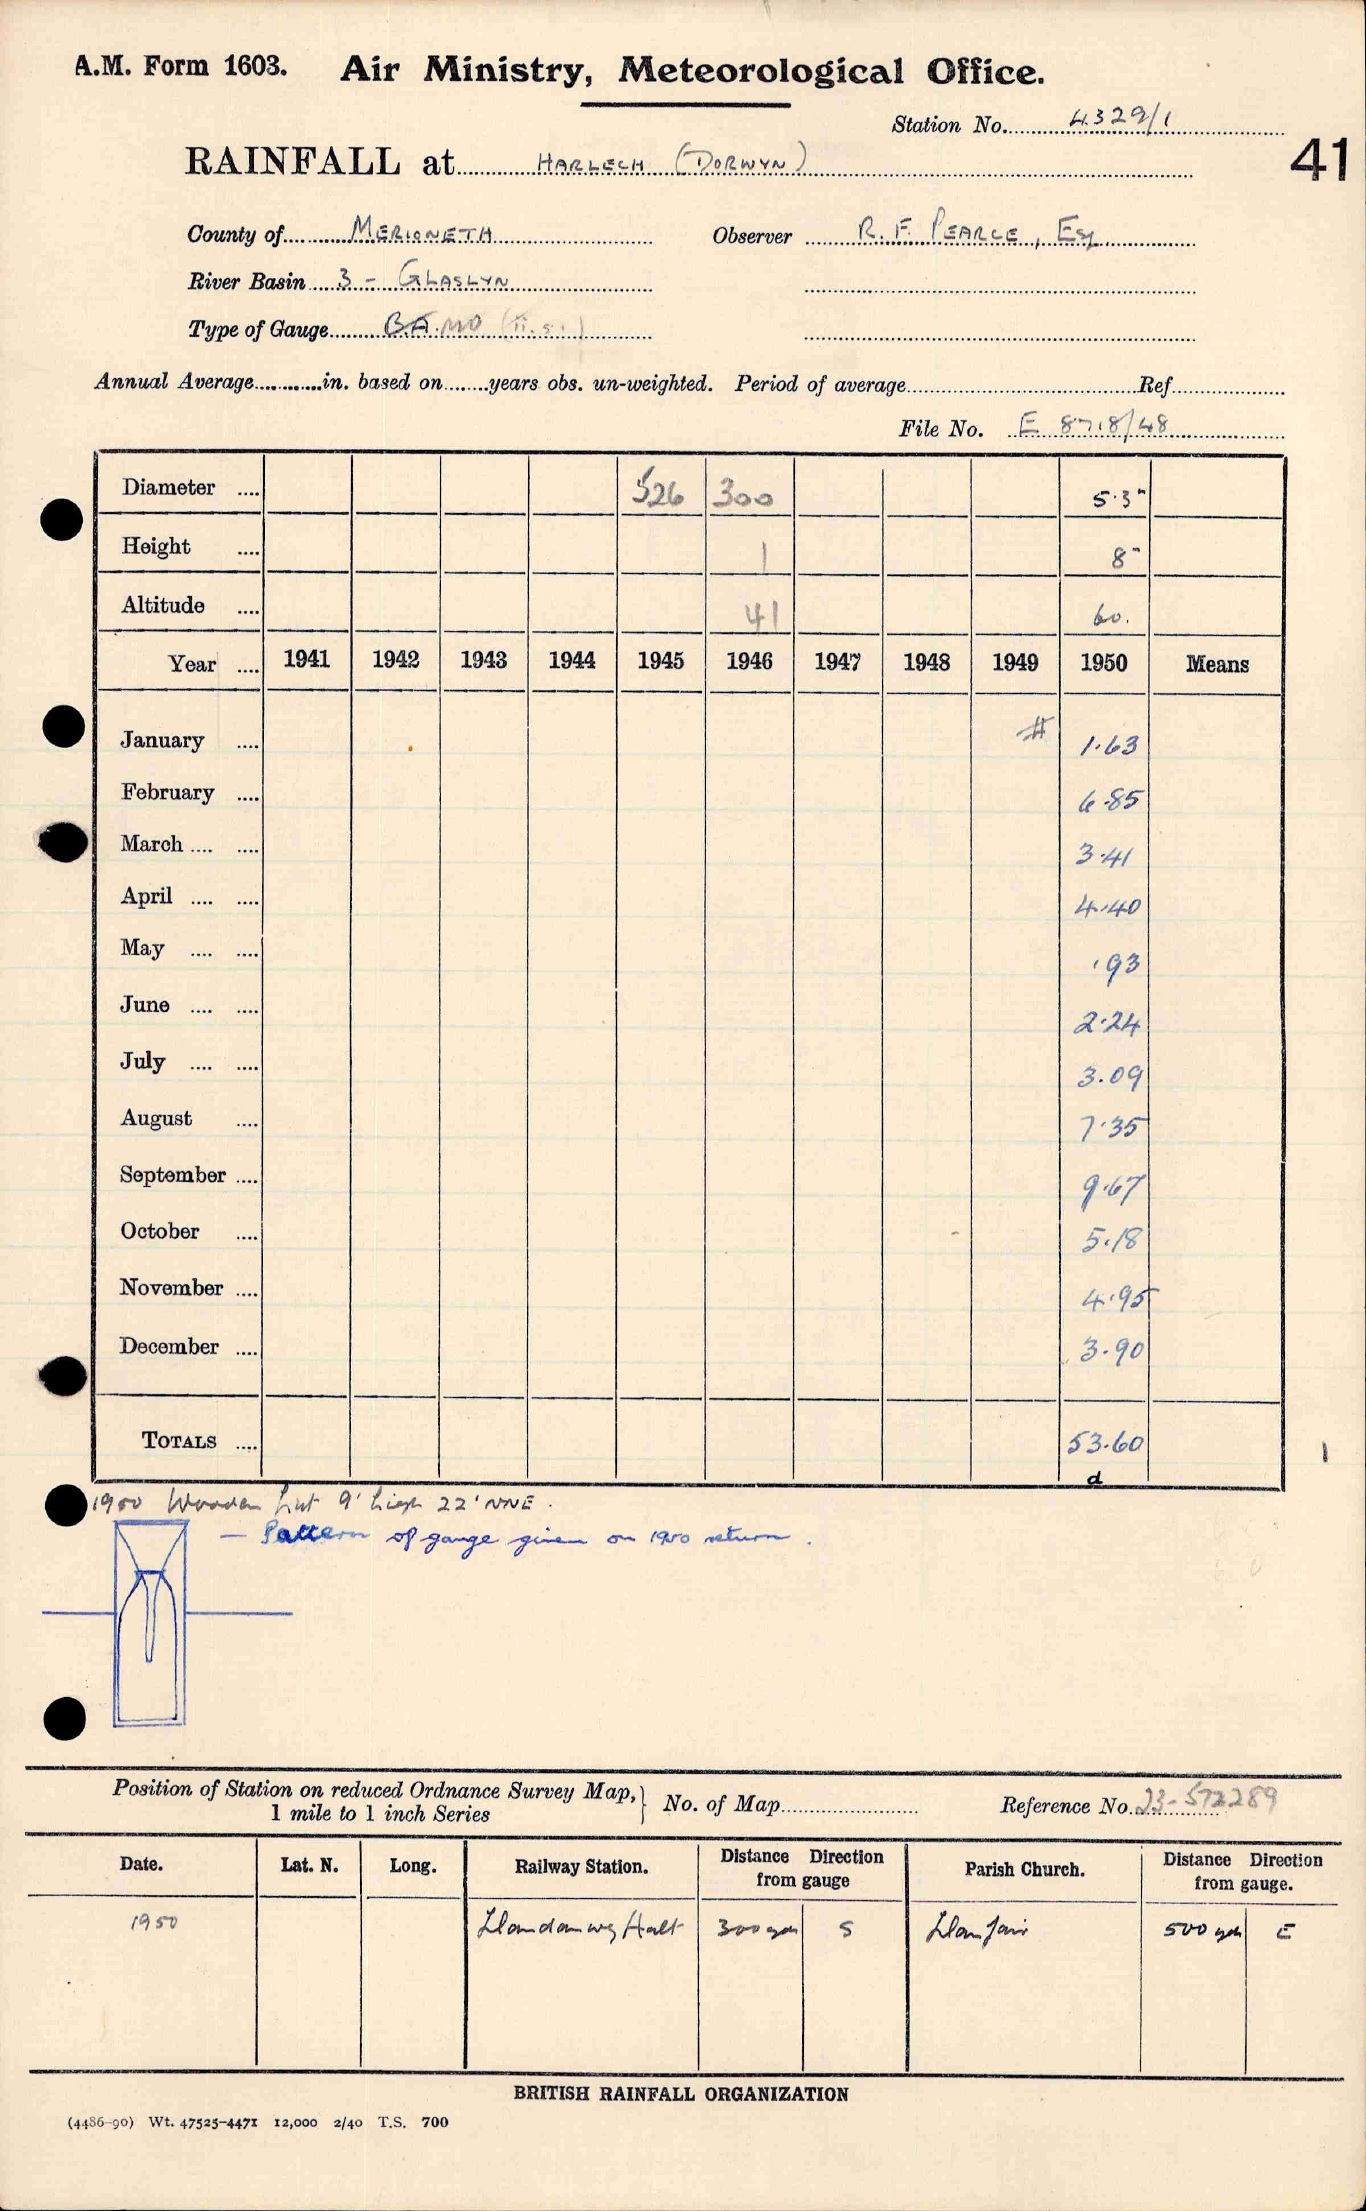 A.M. Form 1603. Air Ministry, Meteorological Office.
Station No. 4329/1
41
RAINFALL at HARLECH (DORWYN)
County of MERIONETH Observer R. F. PEARCE, Esq
River Basin 3 - GLASLYN
Type of Gauge B.A. MO
Annual Average in. based on years obs. un-weighted. Period of average Ref
File No. E 8718/48
Diameter 526 300 5.3"
Height 1 8"
Altitude 41 60.
Year 1941 1942 1943 1944 1945 1946 1947 1948 1949 1950 Means
January # 1.63
February 6.85
March 3.41
April 4.40
May .93
June 2.24
July 3.09
August 7.35
September 9.67
October 5.18
November 4.95
December 3.90
TOTALS 53.60
d
1950 Wooden hut 9' high 22' NNE.
— Pattern of gauge given on 1950 return.
Position of Station on reduced Ordnance Survey Map, 1 mile to 1 inch Series } No. of Map Reference No. 23-572289
Date. Lat. N. Long. Railway Station. Distance Direction from gauge Parish Church. Distance Direction from gauge.
1950 Llandanwg Halt 300 yds S Llanfair 500 yds E
BRITISH RAINFALL ORGANIZATION
(4486-90) Wt. 47525-4471 12,000 2/40 T.S. 700